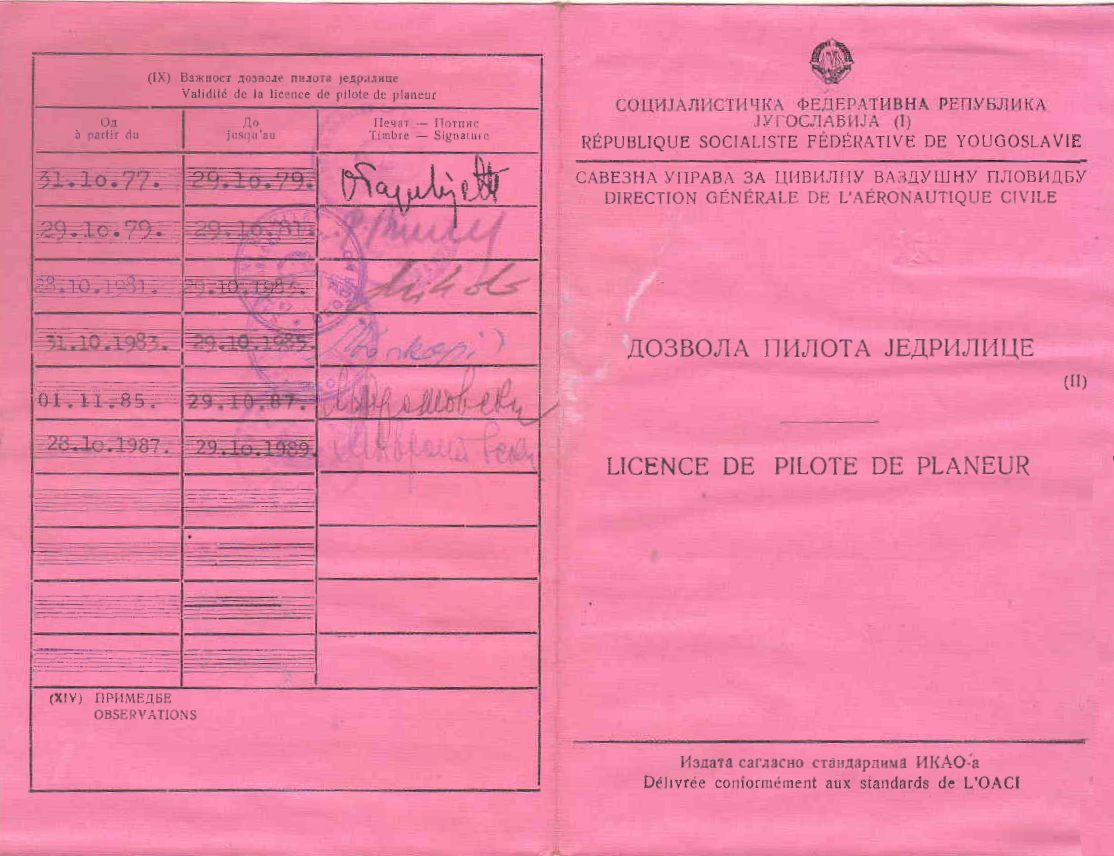 (IX) Важност дозволе пилота једрилице
Validité de la licence de pilote de planeur
Од
à partir du
До
jusqu'au
Печат — Потпис
Timbre — Signature
31.10.77. 29.10.79.
29.10.79. 29.10.81.
28.10.1981. 29.10.1983.
31.10.1983. 29.10.1985.
01.11.85. 29.10.87.
28.10.1987. 29.10.1989.
(XIV) ПРИМЕДБЕ
OBSERVATIONS
СОЦИЈАЛИСТИЧКА ФЕДЕРАТИВНА РЕПУБЛИКА
ЈУГОСЛАВИЈА (I)
RÉPUBLIQUE SOCIALISTE FÉDÉRATIVE DE YOUGOSLAVIE
САВЕЗНА УПРАВА ЗА ЦИВИЛНУ ВАЗДУШНУ ПЛОВИДБУ
DIRECTION GÉNÉRALE DE L'AÉRONAUTIQUE CIVILE
ДОЗВОЛА ПИЛОТА ЈЕДРИЛИЦЕ
(II)
LICENCE DE PILOTE DE PLANEUR
Издата сагласно стандардима ИКАО-а
Délivrée conformément aux standards de L'OACI